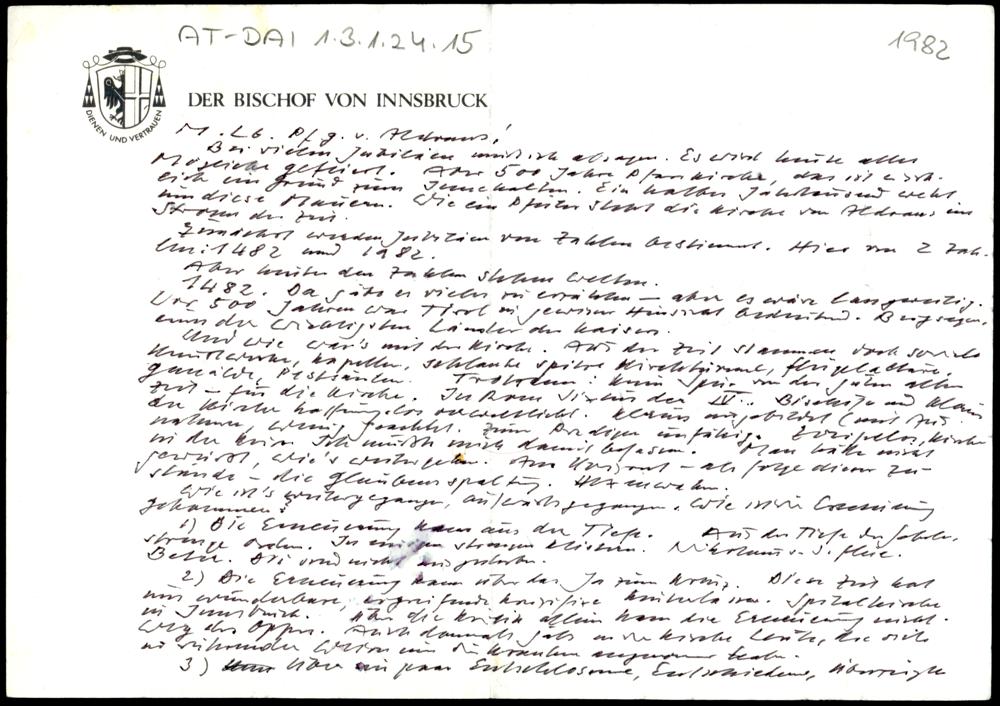 AT-DAI 1.3.1.24.15
1982
DIENEN UND VERTRAUEN
DER BISCHOF VON INNSBRUCK
M. Lb. Pfg. v. Aldrans!
Bei vielen Jubiläen muß ich absagen. Es wird heute alles
Mögliche gefeiert. Aber 500 Jahre Pfarrkirche, das ist wirk-
lich ein Grund zum Innehalten. Ein halbes Jahrtausend weht
um diese Mauern. Wie ein Pfeiler steht die Kirche von Aldrans im
Strom der Zeit.
Zunächst werden Jubiläen von Zahlen bestimmt. Hier von 2 Zah-
len: 1482 und 1982.
Aber hinter den Zahlen stehen Welten.
1482. Da gäbe es vieles zu erzählen – aber es wäre langweilig.
Vor 500 Jahren war Tirol in gewisser Hinsicht bedeutend. Bergsegen,
eines der wichtigsten Länder des Kaisers.
Und wie war's mit der Kirche. Aus der Zeit stammen doch so viele
Kunstwerke, Kapellen, schlanke spitze Kirchtürme, Flügelaltäre,
Gemälde, Pestsäulen. Trotzdem: keine Spur von der guten alten
Zeit – für die Kirche. In Rom Sixtus der IV. Bischöfe und Klerus
der Kirche hoffnungslos verweltlicht. Klerus ungebildet (mit Aus-
nahmen), wenig geachtet. Zum Predigen unfähig. Zügellos, Kirche
in der Krise. Ich mußte mich damit befassen. Man hätte nicht
gewußt, wie's weitergeht. Am Horizont – als Folge dieser Zu-
stände – die Glaubensspaltung. Hexenwahn.
Wie ist's weitergegangen, aufwärtsgegangen. Wie ist die Erneuerung
gekommen?
1) Die Erneuerung kam aus der Tiefe. Aus der Tiefe des Gebetes.
strenge Orden. In einigen strengen Klöstern. Nikolaus v. d. Flüe.
Beter. Die sind nicht ausgestorben.
2) Die Erneuerung kam über das Ja zum Kreuz. Diese Zeit hat
uns wunderbare, ergreifende Kruzifixe hinterlassen. Spitalkirche
in Innsbruck. Über die Kritik allein kam die Erneuerung nicht.
Weg des Opfers. Auch damals gab's in der Kirche Leute, die sich
in rührender Weise um die Kranken angenommen haben.
3) Über ein paar Entschlossene, Entschiedene, Überzeugte